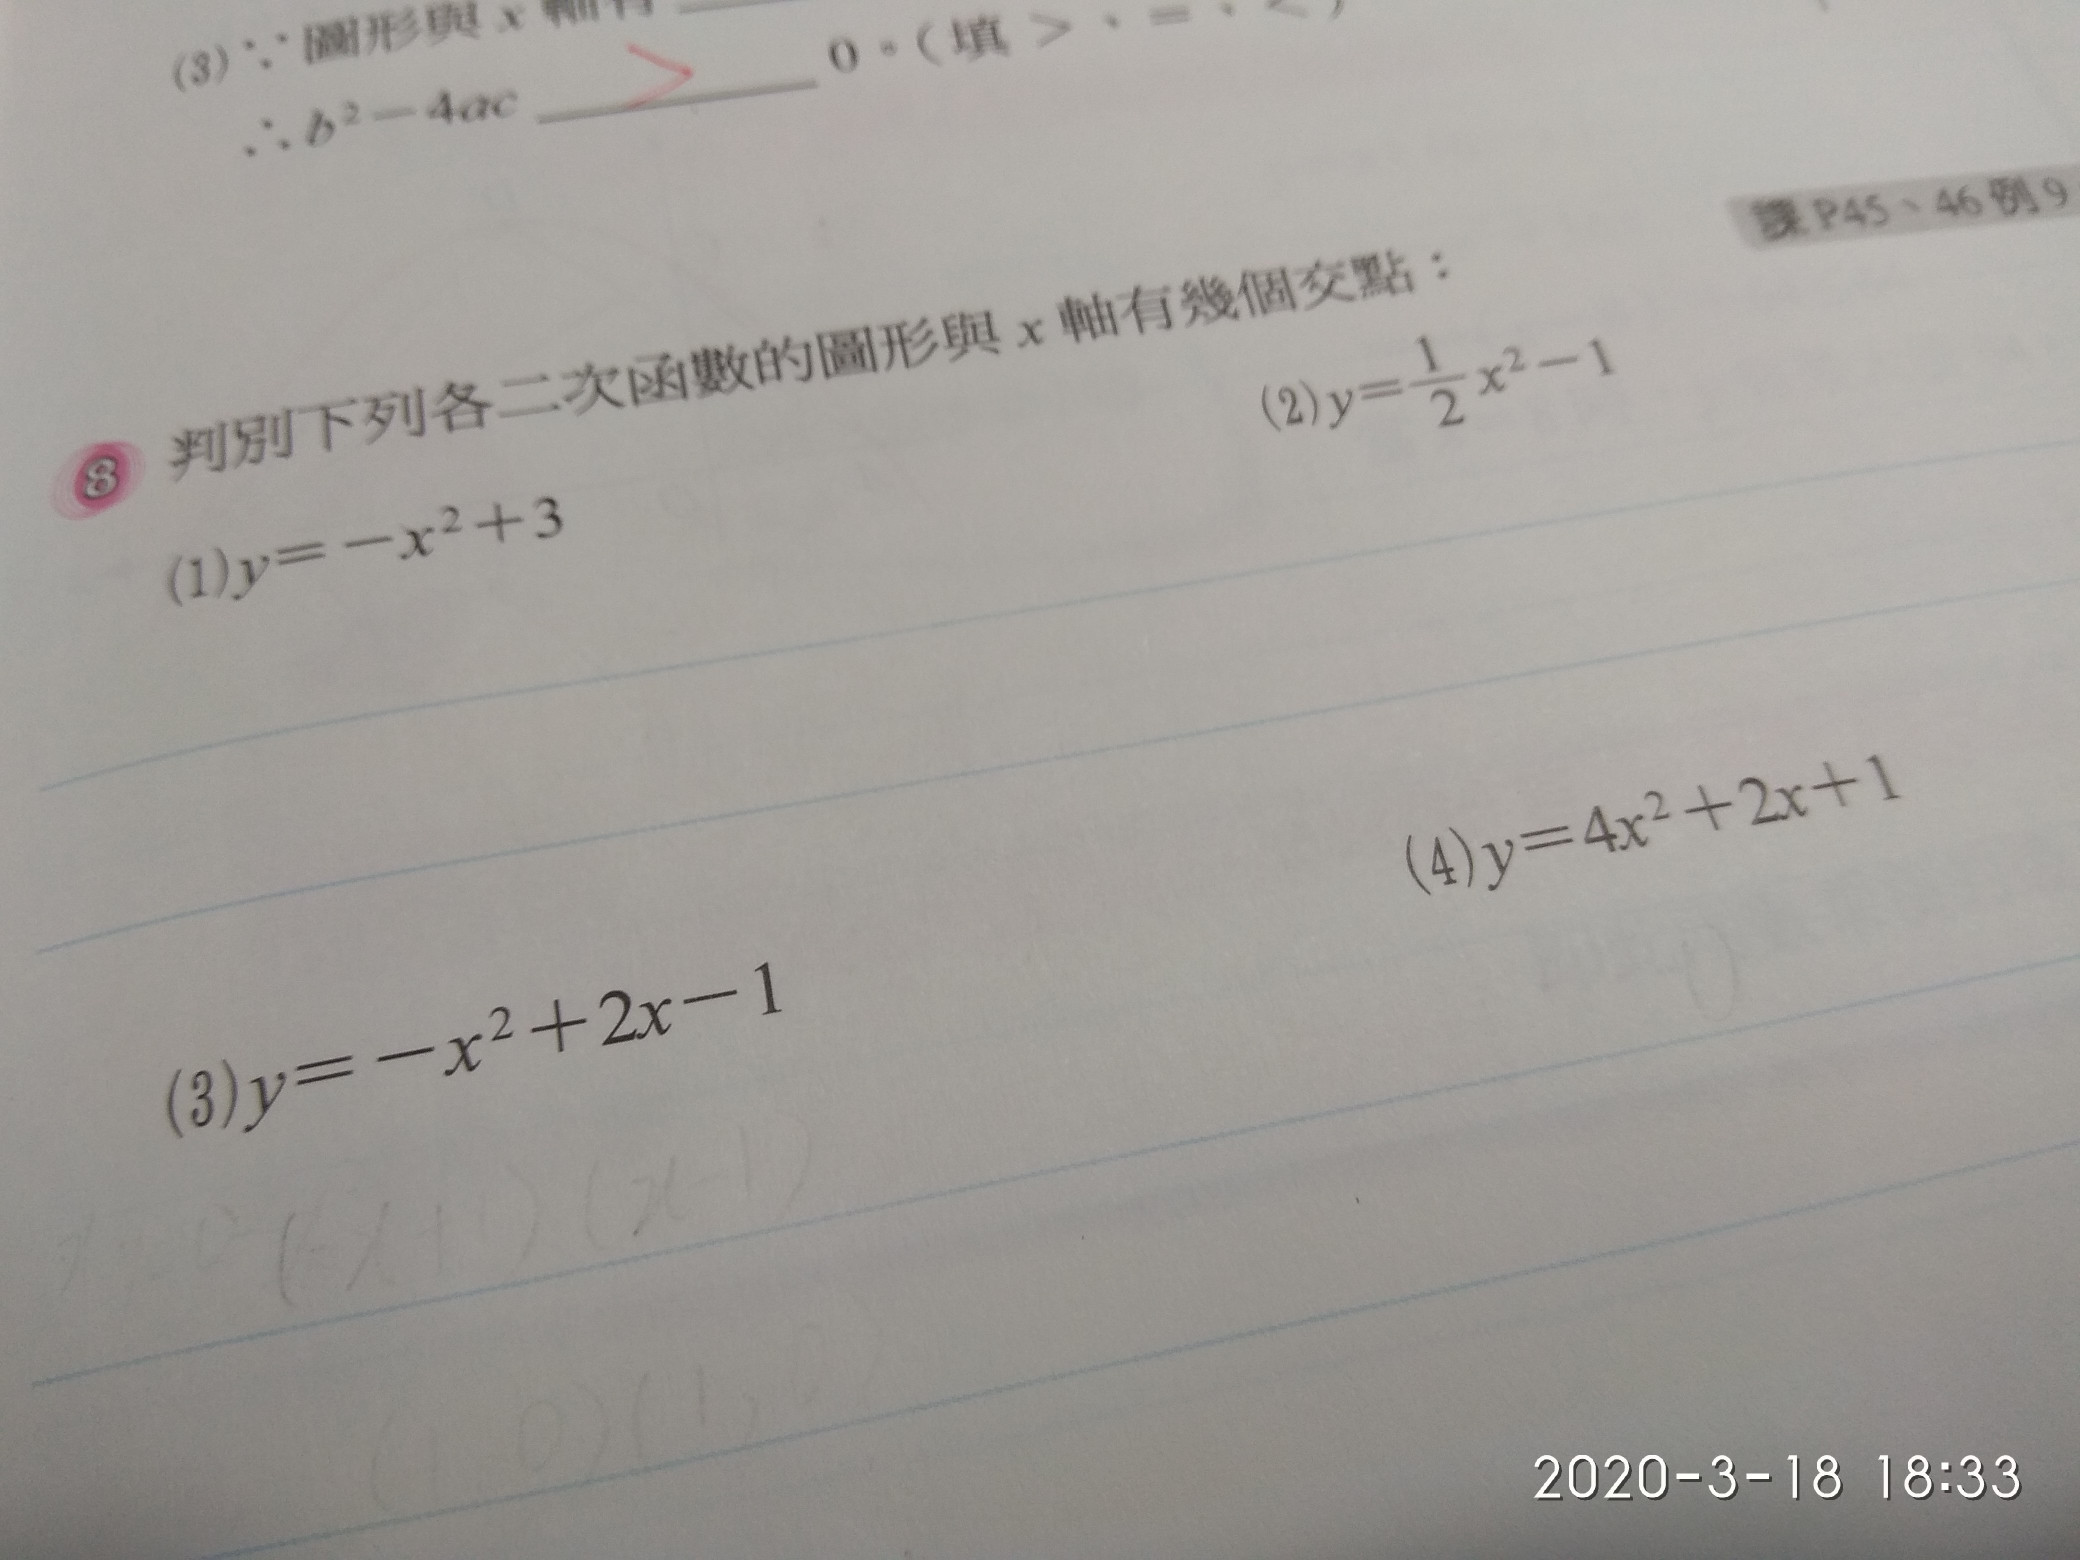 (3)∵圖形與 x 軸有
∴b²－4ac ＞ 0。（填 ＞、＝、＜）
課 P45、46 例 9
8 判別下列各二次函數的圖形與 x 軸有幾個交點：
(1)y＝－x²＋3
(2)y＝1/2 x²－1
(3)y＝－x²＋2x－1
(4)y＝4x²＋2x＋1
(-x+1)(x-1)
2020-3-18 18:33